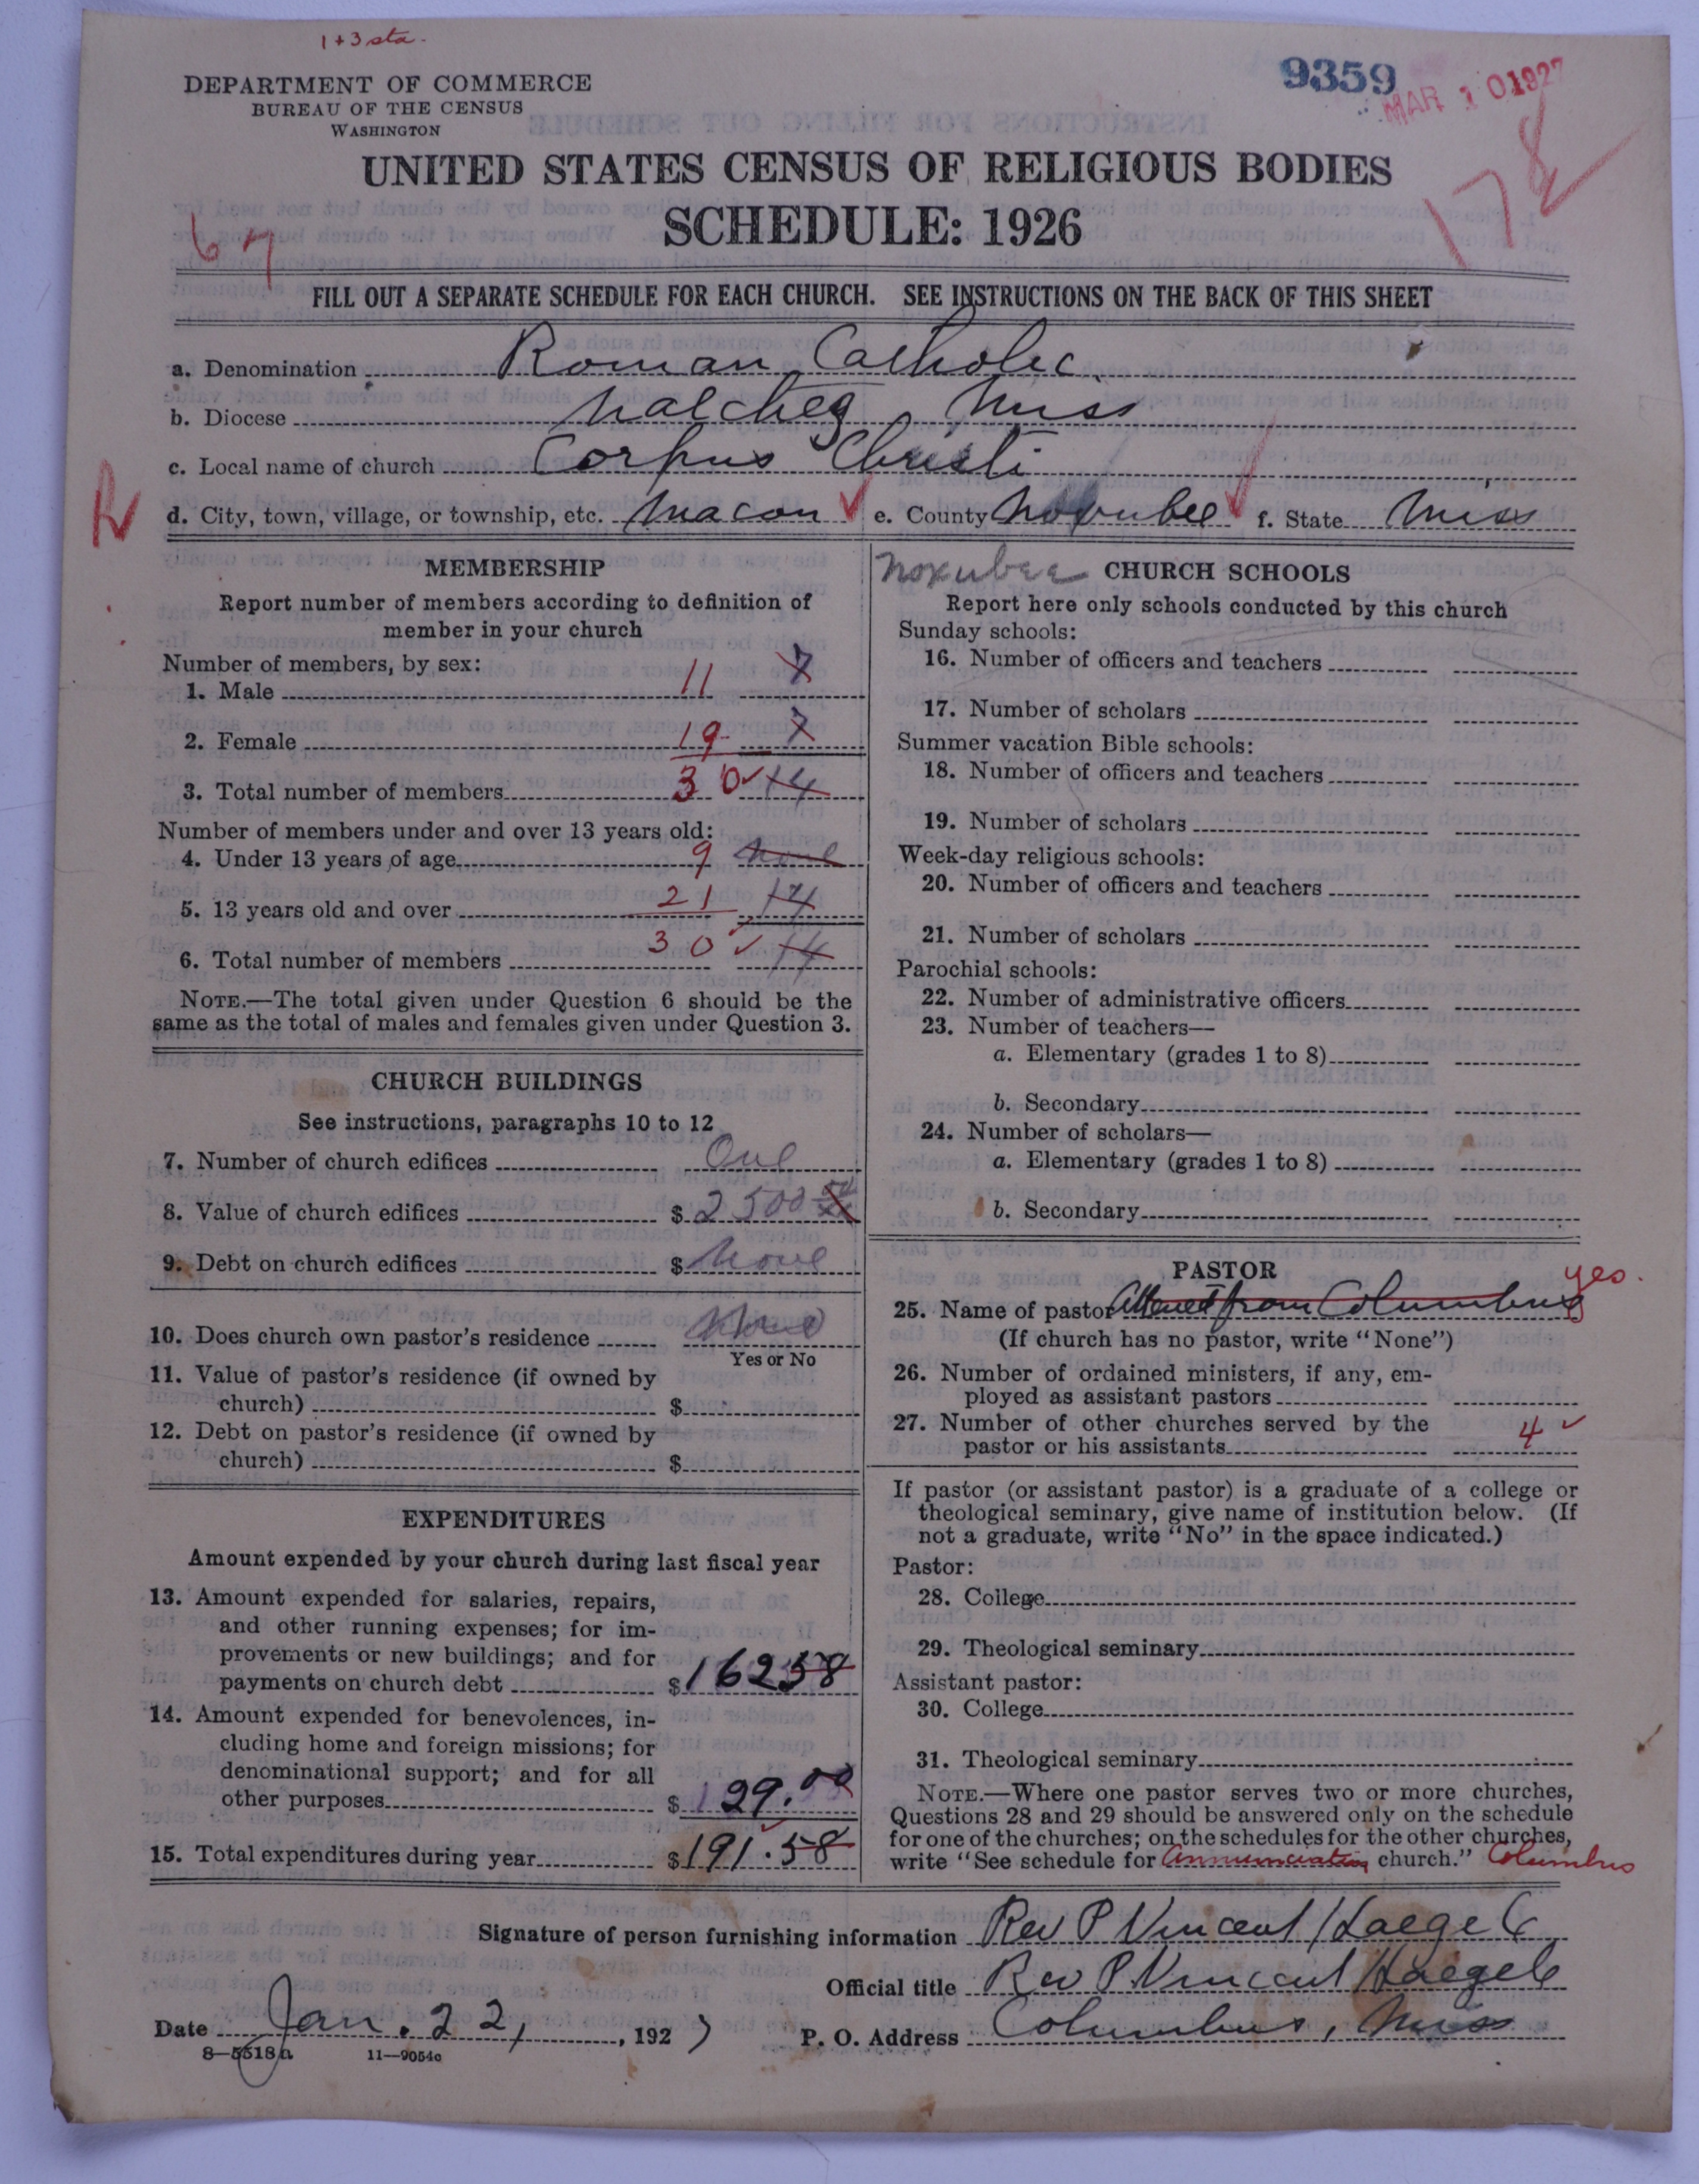 1+3 sta.
DEPARTMENT OF COMMERCE
BUREAU OF THE CENSUS
WASHINGTON
9359
MAR 10 1927
178
UNITED STATES CENSUS OF RELIGIOUS BODIES
SCHEDULE: 1926
67
FILL OUT A SEPARATE SCHEDULE FOR EACH CHURCH. SEE INSTRUCTIONS ON THE BACK OF THIS SHEET
a. Denomination Roman Catholic
b. Diocese Natchez, Miss
c. Local name of church Corpus Christi
R
d. City, town, village, or township, etc. Macon ✓ e. County Noxubee ✓ f. State Miss
MEMBERSHIP
Report number of members according to definition of
member in your church
Number of members, by sex:
1. Male 11 7
2. Female 19 7
3. Total number of members 30 ✓ 14
Number of members under and over 13 years old:
4. Under 13 years of age 9 none
5. 13 years old and over 21 14
6. Total number of members 30 ✓ 14
NOTE.—The total given under Question 6 should be the
same as the total of males and females given under Question 3.
CHURCH BUILDINGS
See instructions, paragraphs 10 to 12
7. Number of church edifices One
8. Value of church edifices $ 2500
9. Debt on church edifices $ None
10. Does church own pastor's residence None
Yes or No
11. Value of pastor's residence (if owned by
church) $
12. Debt on pastor's residence (if owned by
church) $
EXPENDITURES
Amount expended by your church during last fiscal year
13. Amount expended for salaries, repairs,
and other running expenses; for im-
provements or new buildings; and for
payments on church debt $ 162 58
14. Amount expended for benevolences, in-
cluding home and foreign missions; for
denominational support; and for all
other purposes $ 29.00
15. Total expenditures during year $ 191.58
Noxubee CHURCH SCHOOLS
Report here only schools conducted by this church
Sunday schools:
16. Number of officers and teachers
17. Number of scholars
Summer vacation Bible schools:
18. Number of officers and teachers
19. Number of scholars
Week-day religious schools:
20. Number of officers and teachers
21. Number of scholars
Parochial schools:
22. Number of administrative officers
23. Number of teachers—
a. Elementary (grades 1 to 8)
b. Secondary
24. Number of scholars—
a. Elementary (grades 1 to 8)
b. Secondary
PASTOR
yes.
25. Name of pastor Attened from Columbus
(If church has no pastor, write "None")
26. Number of ordained ministers, if any, em-
ployed as assistant pastors
27. Number of other churches served by the
pastor or his assistants 4 ✓
If pastor (or assistant pastor) is a graduate of a college or
theological seminary, give name of institution below. (If
not a graduate, write "No" in the space indicated.)
Pastor:
28. College
29. Theological seminary
Assistant pastor:
30. College
31. Theological seminary
NOTE.—Where one pastor serves two or more churches,
Questions 28 and 29 should be answered only on the schedule
for one of the churches; on the schedules for the other churches,
write "See schedule for Annunciation church." Columbus
Signature of person furnishing information Rev P Vincent Haegele
Official title Rev P. Vincent Haegele
Date Jan. 22, 1927 P. O. Address Columbus, Miss
8—5518a 11—9054c